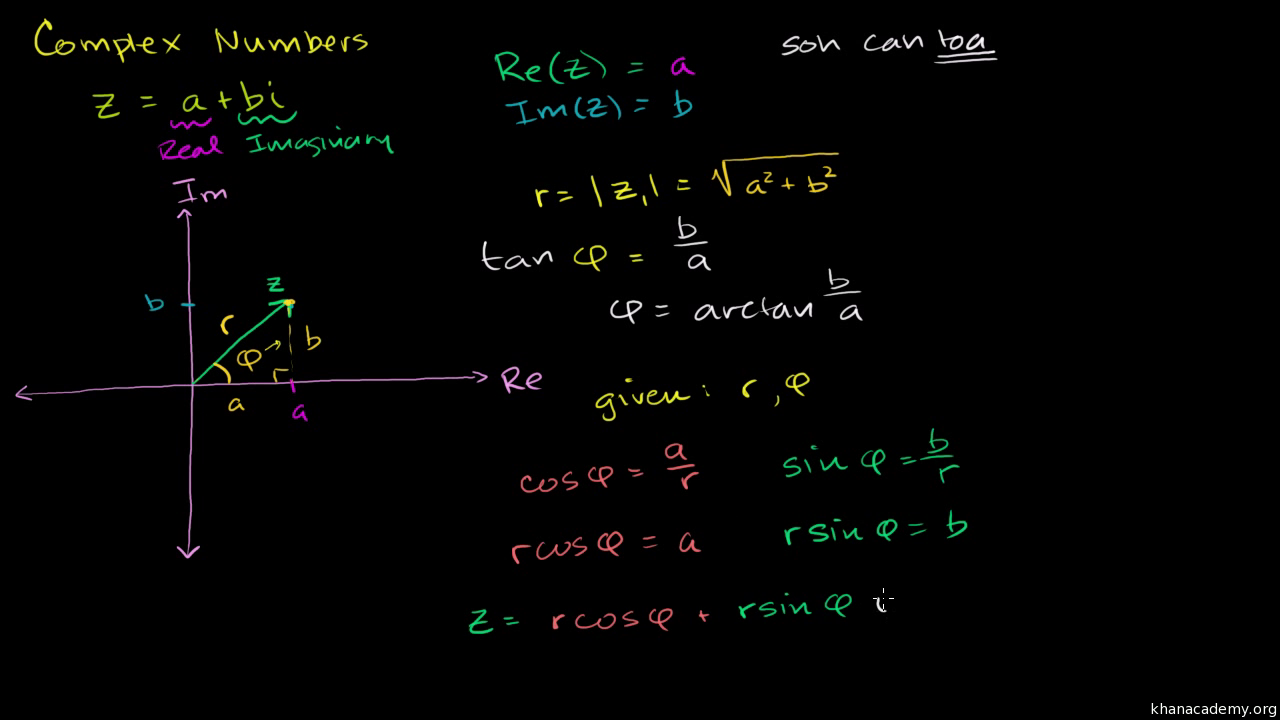 Complex Numbers
z = a + bi
Real Imaginary
Re(z) = a
Im(z) = b
soh cah toa
r = |z₁| = √(a² + b²)
tan φ = b/a
φ = arctan b/a
Im
b
z
r
φ
b
a
a
Re
given: r, φ
cos φ = a/r
sin φ = b/r
r cos φ = a
r sin φ = b
z = r cos φ + r sin φ
khanacademy.org